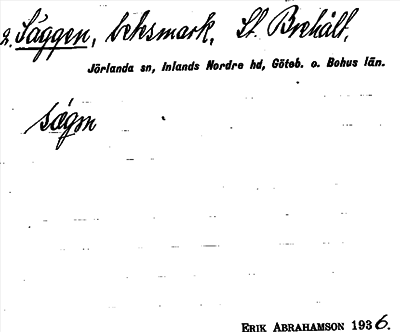 2. Säggen, beksmark, St. Brehält,
Jörlanda sn, Inlands Nordre hd, Göteb. o. Bohus län.
sægn
ERIK ABRAHAMSON 1936.